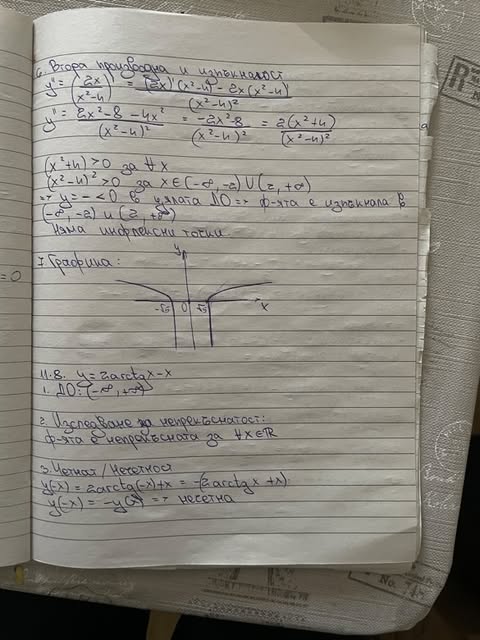 6. Втора производна и изпъкналост
y'' = (2x / x²-4)' = (2x)'(x²-4) - 2x(x²-4)' / (x²-4)²
y'' = 2x²-8-4x² / (x²-4)² = -2x²-8 / (x²-4)² = 2(x²+4) / (x²-4)²
(x²+4)>0 за ∀x
(x²-4)²>0 за x∈(-∞,-2)∪(2,+∞)
=> y=-<0 в цялата ДО => ф-ята е изпъкнала в
(-∞,-2) и (2,+∞)
Няма инфлексни точки
7. Графика:
y
-√5 0 √5 x
=0
11.8. y=2arctgx-x
1. ДО: (-∞,+∞)
2. Изследване за непрекъснатост:
ф-ята е непрекъсната за ∀x∈ℝ
3. Четност/Нечетност
y(-x) = 2arctg(-x)+x = -(2arctgx+x)
y(-x) = -y(x) => нечетна